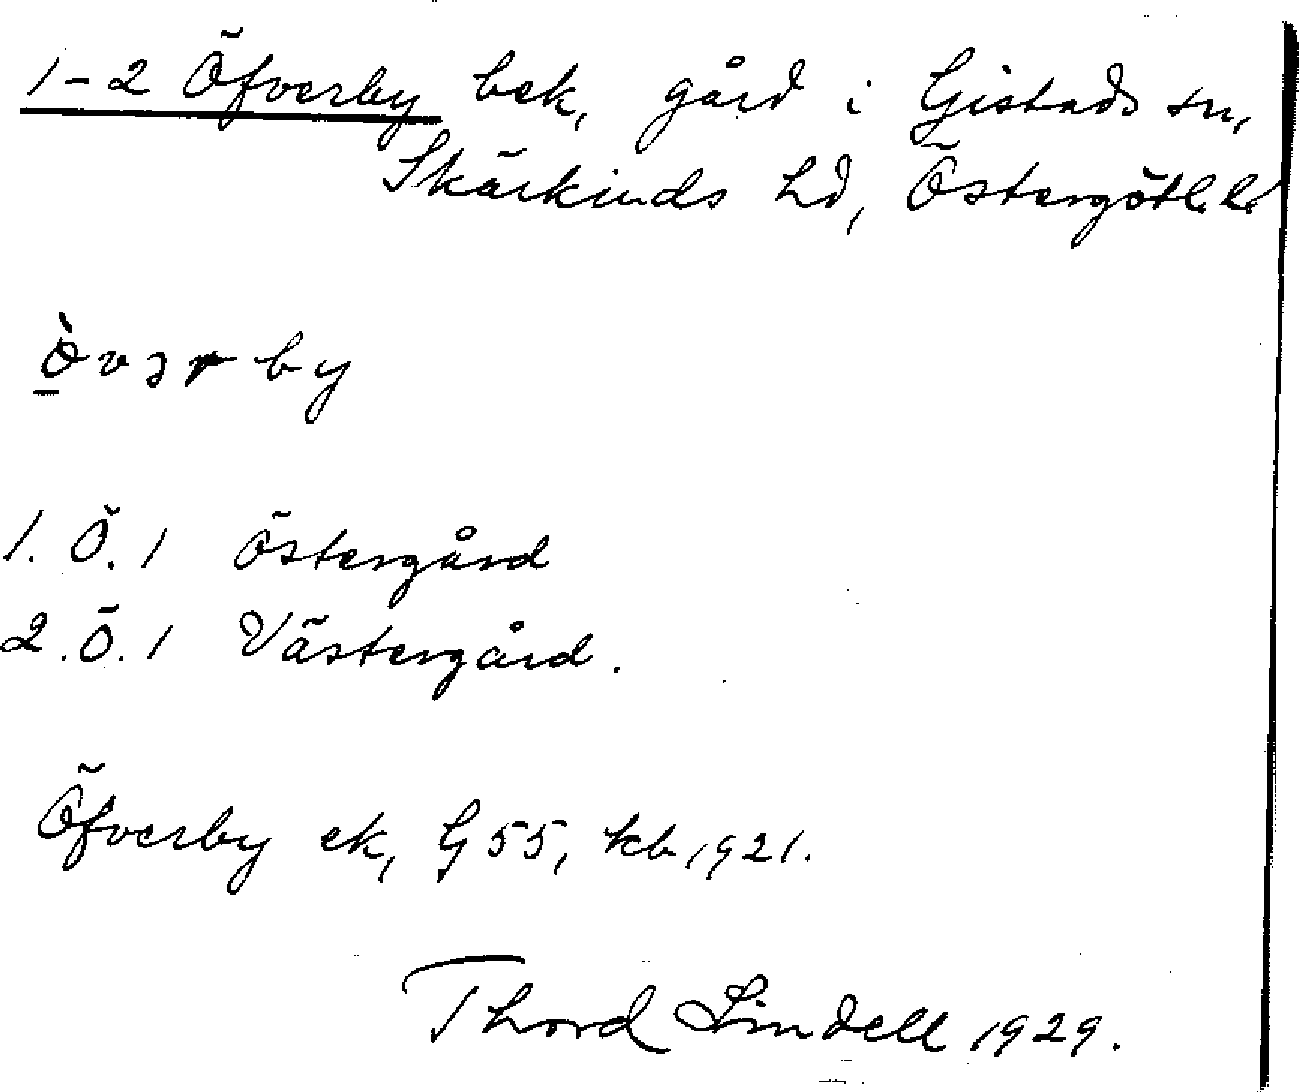 1-2 Öfverby bek, gård i Gistads sn,
Skärkinds hd, Östergötl. l.
ö̀vərby
1. Ö. 1 Östergård
2. Ö. 1 Västergård.
Öfverby ek, G 55, kb 1921.
Thord Lindell 1929.